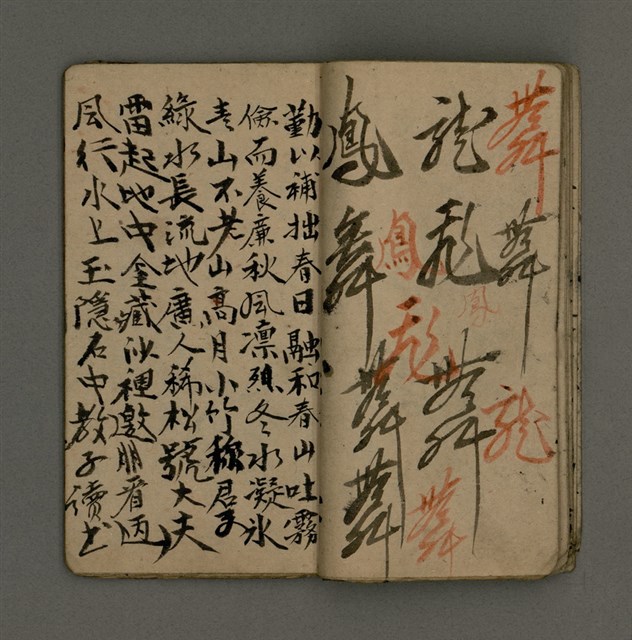 舞 舞 龍
龍 飛 舞 舞
鳳
鳳 飛
鳳 舞 舞 舞
勤以補拙春日融和春山吐霧
儉而養廉秋風凛烈冬水凝氷
青山不老山高月小竹称君子
綠水長流地廣人稀松號大夫
雷起地中金藏沙裡邀朋看
風行水上玉隱石中教子讀书